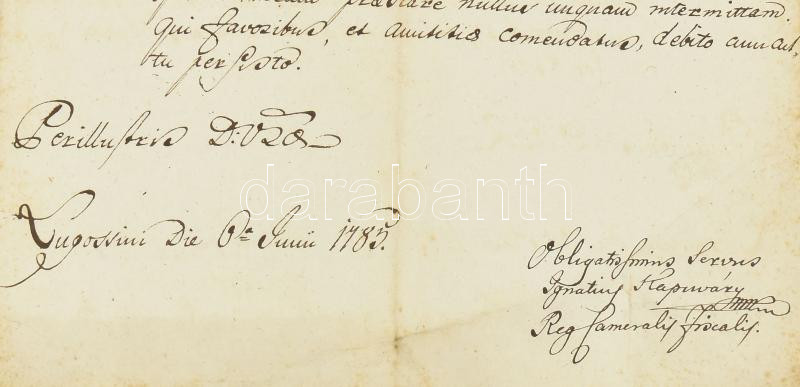 præstare nullus unquam intermittam.
qui favoribus, et amicitiæ comendatus, debito cum cul-
tu persisto.
Perillustris D: Vræ
darabanth
Lugossini Die 6ta Junii 1785.
Obligatissimus Servus
Ignatius Kapuváry
Reg Cameralis fiscalis.